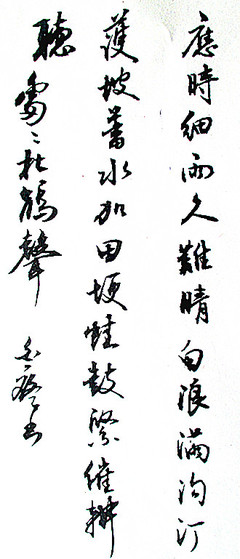 應時細雨久難晴白浪滿沟汀
護坡蓄水加田埂蛙鼓緊催耕
聽杜鵑聲
書